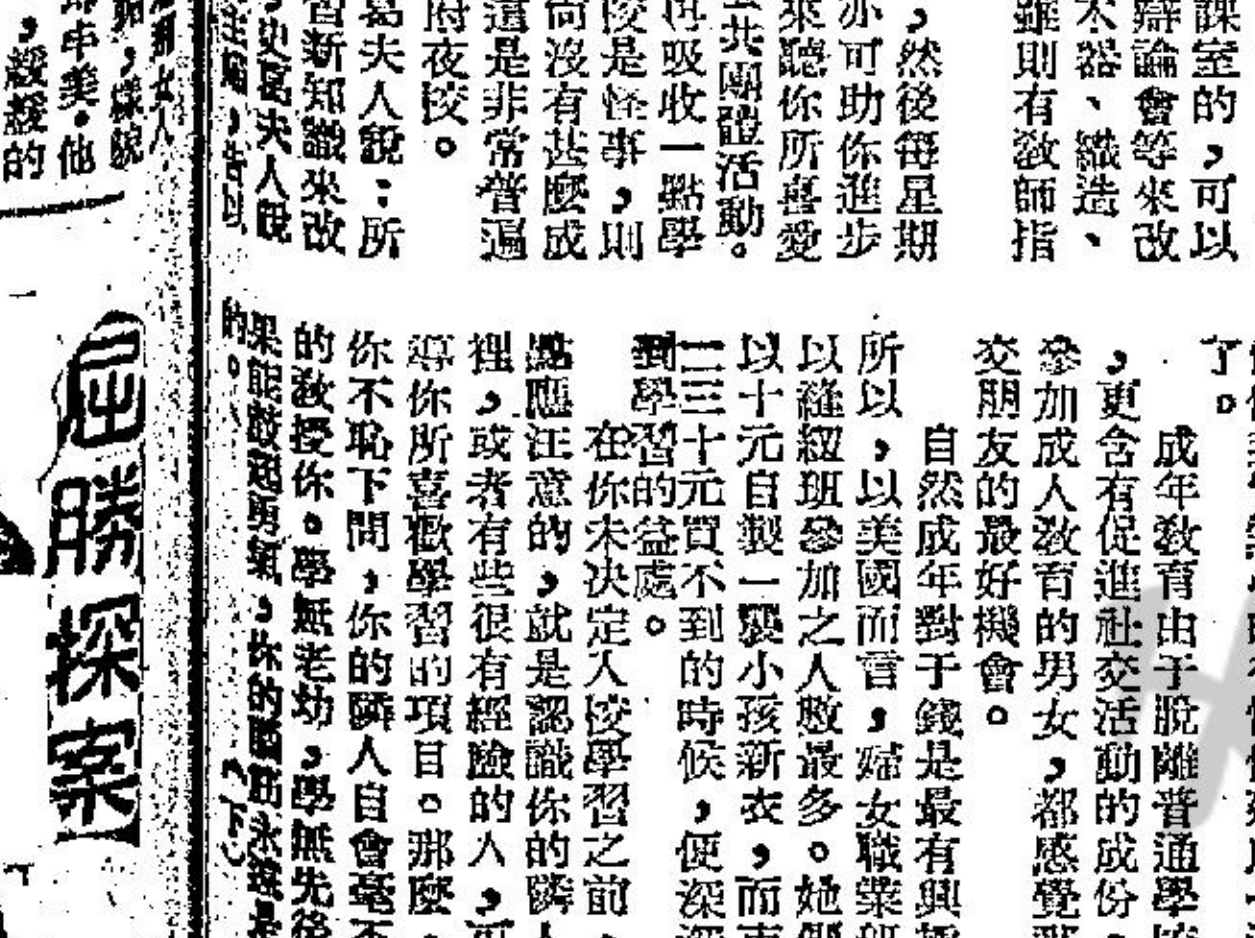 課室的，可以
辯論會等來改
木器、織造、
雖則有敎師指
，然後每星期
亦可助你進步
來聽你所喜愛
共團體活動。
吸收一點學
後是怪事，則
尚沒有甚麼成
還是非常普遍
附夜校。
葛夫人說：所
習新知識來改
史葛夫人說
了。
成年敎育由于脫離普通學
，更含有促進社交活動的成份
參加成人敎育的男女，都感覺
交朋友的最好機會。
自然成年對于錢是最有興
所以，以美國而言，婦女職業班
以縫紉班參加之人數最多。她們
以十元自製一襲小孩新衣，而
二三十元買不到的時候，便深深
到學習的益處。
在你未决定入校學習之前，
點應注意的，就是認識你的隣人
裡，或者有些很有經驗的人，可
導你所喜歡學習的項目。那麼，
你不恥下問，你的隣人自會毫不
的敎授你。學無老幼，學無先後
果能鼓起勇氣，你的腦筋永遠是
的。（下）
那女人
，樣貌
中美。他
，緩緩的
屈勝探案